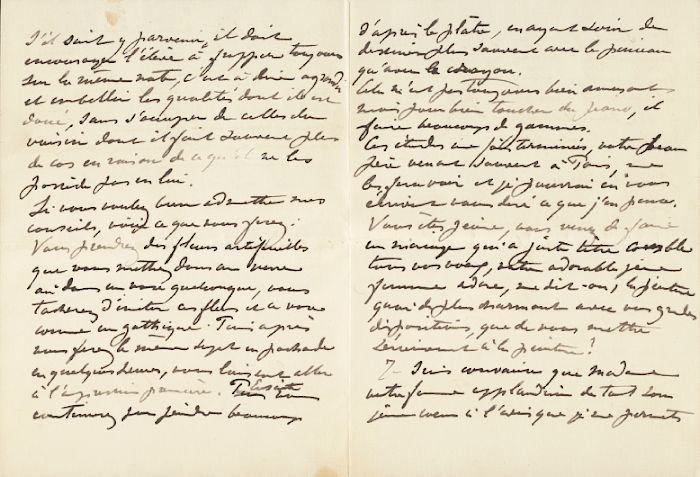 S'il sait y parvenir, il doit
encourager l'élève à frapper toujours
sur la même note, c'est à dire agrandir
et embellir les qualités dont il est
doué, sans s'occuper de celles du
voisin dont il fait souvent plus
de cas en raison de ce qu'il ne les
possède pas en lui.
Si vous voulez bien admettre mes
conseils, voici ce que vous ferez:
Vous prendrez des fleurs artificielles
que vous mettrez dans un verre
ou dans un vase quelconque, vous
tacherez d'imiter ces fleurs et ce vase
comme un gothique. Puis après
vous ferez le même sujet en pochade
en quelques heures, vous laissant aller
à l'impression première. Ensuite
continuez par peindre beaucoup
d'après le plâtre, en ayant soin de
dessiner plus souvent avec le pinceau
qu'avec le crayon.
Cela n'est pas toujours bien amusant
mais pour bien toucher du piano, il
faut beaucoup de gammes.
Ces études une fois terminées, votre beau
père venant souvent à Paris, me
les fera voir et je pourrai en vous
écrivant vous dire ce que j'en pense.
Vous êtes jeune, vous venez de faire
un mariage qui a juste titre comble
tous vos vœux, votre adorable jeune
femme adore, me dit-on, la peinture
quoi de plus charmant avec vos grandes
dispositions, que de vous mettre
sérieusement à la peinture!
Je suis convaincu que madame
votre femme applaudira de tout son
jeune cœur à l'avis que je me permets